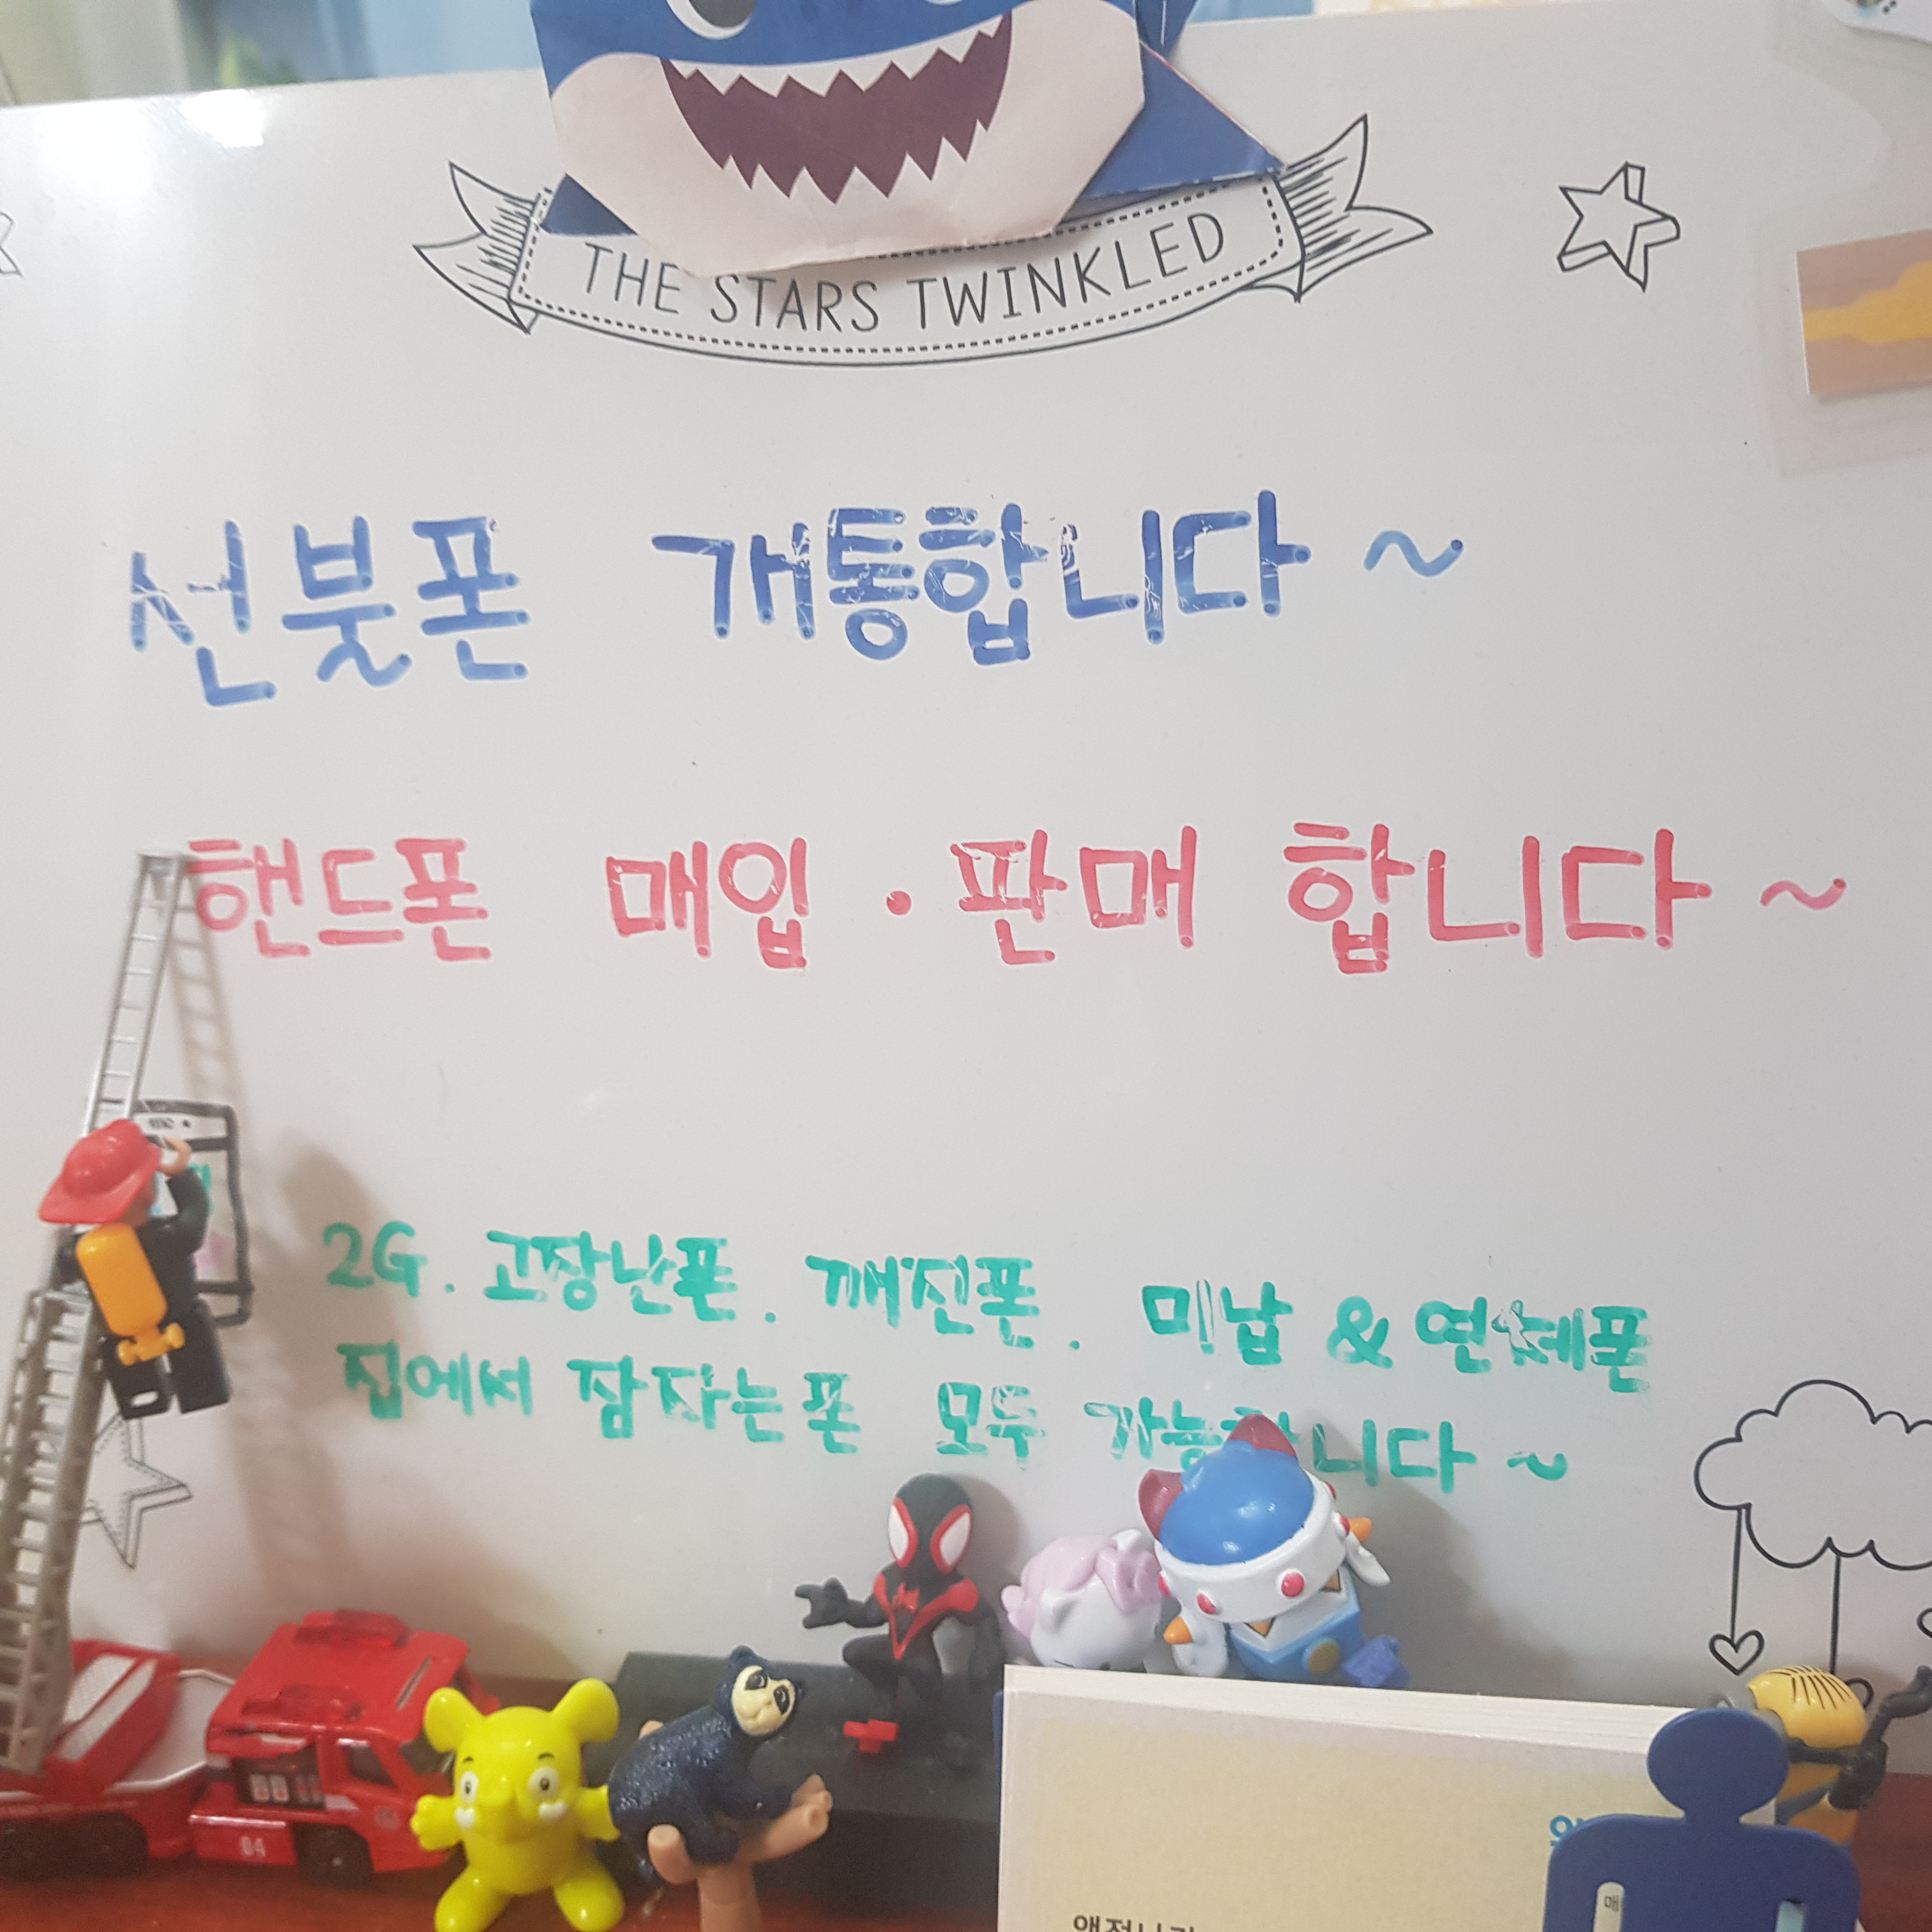 THE STARS TWINKLED
선불폰 개통합니다 ~
핸드폰 매입 · 판매 합니다 ~
2G. 고장난폰. 깨진폰. 미납 & 연체폰
집에서 잠자는폰 모두 가능합니다 ~
84